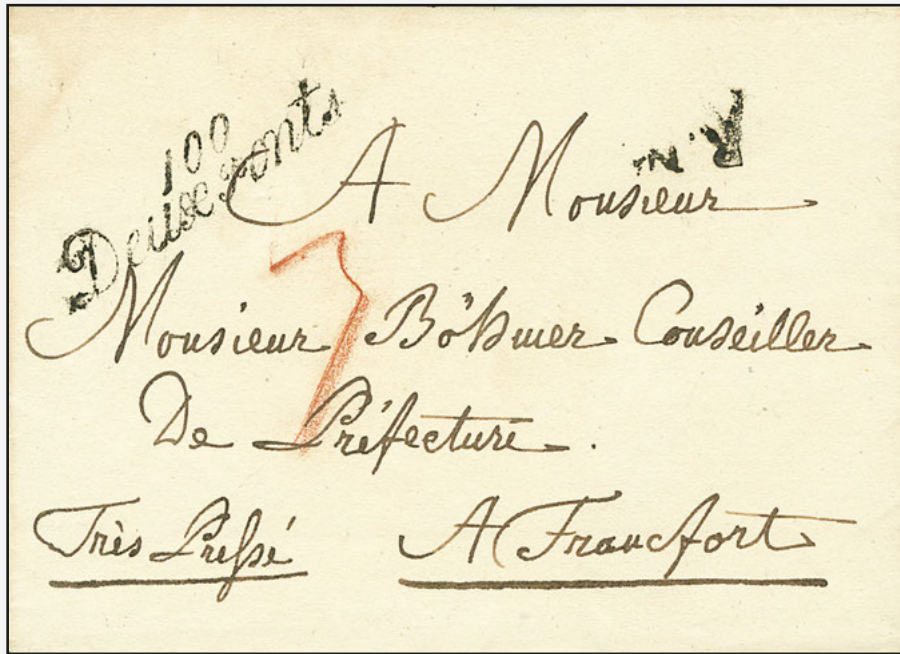 100
Deux Ponts
R. N.
A Monsieur
Monsieur Böhmer Conseiller
De Préfecture.
Très Preſsé
A Francfort